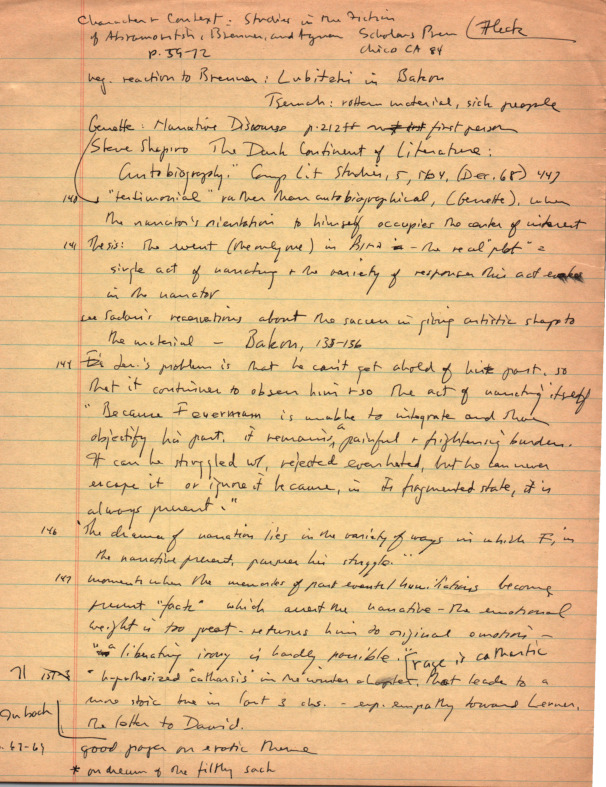 Character + Context: Studies in the Fiction
of Abramovitsh, Brenner, and Agnon Scholars Press (Fleck
Chico CA 84
p. 39-72
neg. reaction to Brenner: Lubitzki in Bakon
Tsemah: rotten material, sick people
Genette: Narrative Discourse p. 212ff on first person
Steve Shapiro The Dark Continent of Literature:
Autobiography." Comp Lit Studies, 5, (Dec. 68) 447
140 "testimonial" rather than autobiographical, (Genette), when
the narrator's orientation to himself occupies the center of interest
141 Thesis: the event (the only one) in - the real "plot" =
single act of narrating + the variety of responses this act
in the narrator
see Sadan's reservations about the success in giving artistic shape to
the material - Bakon, 138-156
144 problem is that he can't get ahold of his past, so
that it continues to obsess him + so the act of narrating itself
"Because Feuermann is unable to integrate and thus
objectify his past, it remains a painful + frightening burden.
It can be struggled w/, rejected even hated, but he can never
escape it or ignore it because, in its fragmented state, it is
always present."
146 "The drama of narration lies in the variety of ways in which F, in
the narrative present, pursues his struggle."
147 moments when the memories of past events/humiliations become
present "facts" which arrest the narrative - the emotional
weight is too great - returns him to original emotions -
"a liberating irony is hardly possible" rage is cathartic
71 157-3 "hypothesized "catharsis" in the winter chapter, that leads to a
more stoic tone in last 3 chs. - esp. empathy toward Lerner,
the letter to David.
67-69 good paper on erotic theme
* on dream of the filthy sack